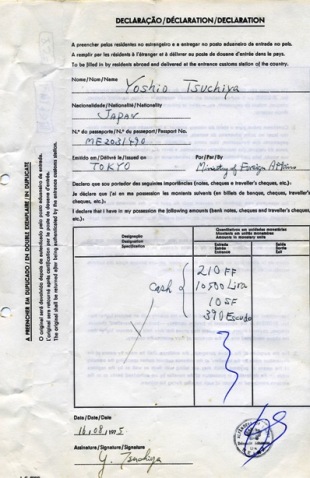 DECLARAÇÃO/DÉCLARATION/DECLARATION
A preencher pelos residentes no estrangeiro e a entregar no posto aduaneiro de entrada no país.
A remplir par les résidents à l'étranger et à délivrer au poste de douane d'entrée dans le pays.
To be filled in by residents abroad and delivered at the entrance customs station of the country.
Nome/Nom/Name
Yoshio Tsuchiya
Nacionalidade/Nationalité/Nationality
JAPAN
N.º do passaporte/N.º du passeport/Passport No.
ME2031490
Emitido em/Délivré le/Issued on
Por/Par/By
TOKYO
Ministry of Foreign Affairs
Declaro que sou portador das seguintes importâncias (notas, cheques e traveller's cheques, etc.).
Je déclare que j'ai en ma possession les montants suivants (en billets de banque, cheques, traveller's
cheques, etc.).
I declare that I have in my possession the following amounts (bank notes, cheques and traveller's cheques,
etc.).
Designação
Désignation
Specification
Quantitativos em unidades monetárias
Montants en unités monétaires
Amounts in monetary units
Entrada
Entrée
Entrance
Saída
Sortie
Exit
Cash
210 FF
10500 Lira
10 SF
390 Escudo
Data/Date/Date
16,08,
Assinatura/Signature/Signature
Y. Tsuchiya
A PREENCHER EM DUPLICADO / EN DOUBLE EXEMPLAIRE / IN DUPLICATE
O original será devolvido depois de autenticado pelo posto aduaneiro de entrada.
L'original sera retourné après certification par le poste de douane d'entrée.
The original shall be returned after being authenticated by the entrance customs station.